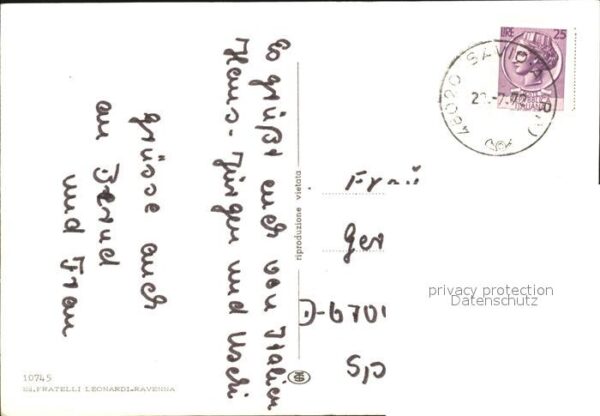 Es grüßt euch von Italien
Hans-Jürgen und Uschi
grüsse auch
an Bernd
und Frau
riproduzione vietata
LIRE 25
48020 SAVIO
Frau
Ger
D-6701
Sp
privacy protection
Datenschutz
10745
Ed. FRATELLI LEONARDI-RAVENNA